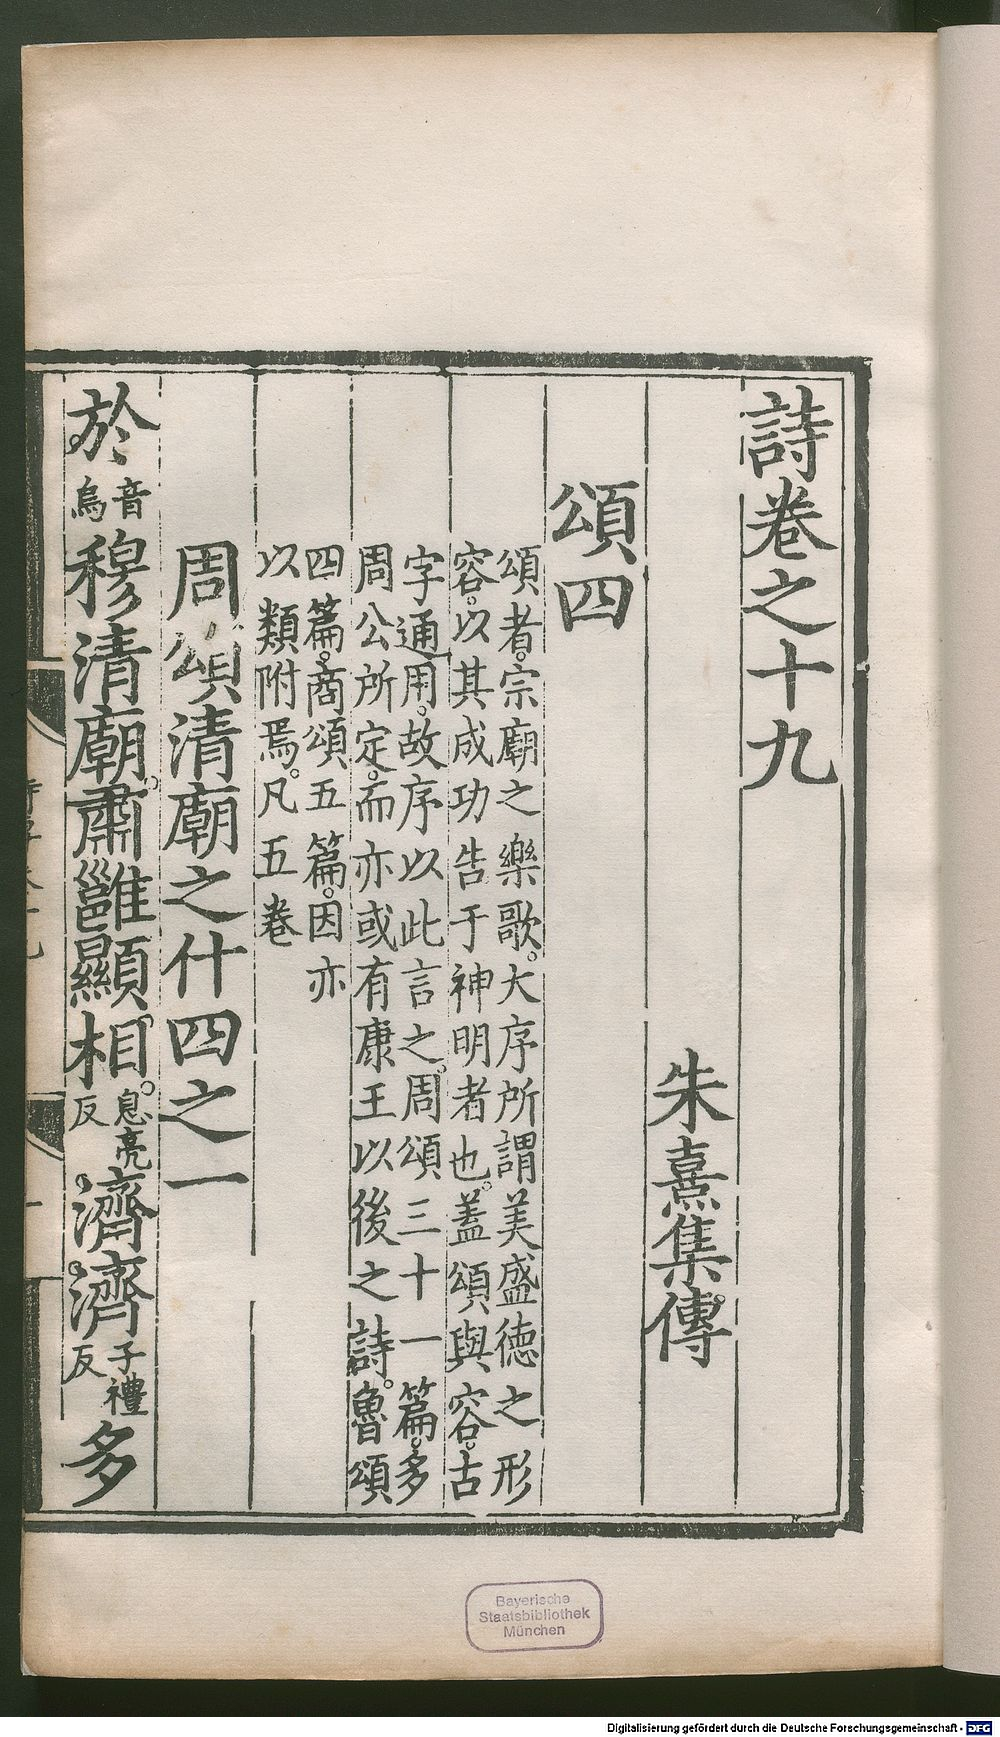 詩卷之十九
朱熹集傳
頌四
頌者。宗廟之樂歌。大序所謂美盛德之形
容。以其成功告于神明者也。蓋頌與容。古
字通用。故序以此言之。周頌三十一篇。多
周公所定。而亦或有康王以後之詩。魯頌
四篇。商頌五篇。因亦
以類附焉。凡五卷
周頌清廟之什四之一
於音烏穆清廟。肅雝顯相。息亮反濟濟子禮反多
Bayerische
Staatsbibliothek
München
Digitalisierung gefördert durch die Deutsche Forschungsgemeinschaft - DFG